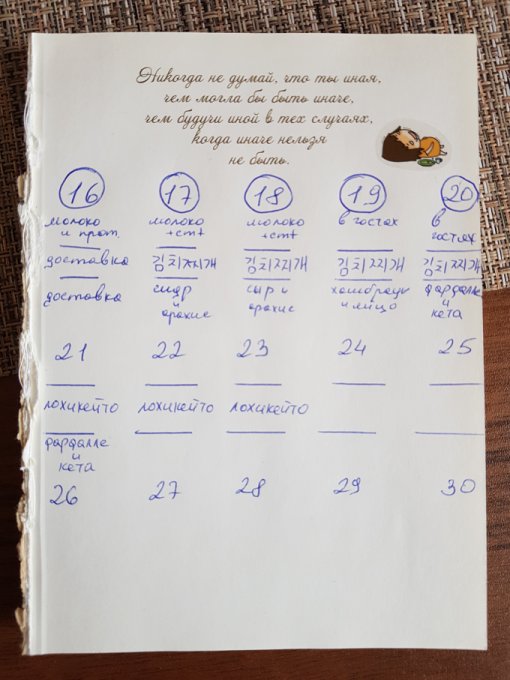 Никогда не думай, что ты иная,
чем могла бы быть иначе,
чем будучи иной в тех случаях,
когда иначе нельзя
не быть.
16 17 18 19 20
молоко и прот молоко +cm+ молоко +cm+ в гостях в гостях
доставка 김치찌개 김치찌개 김치찌개 김치찌개
доставка сидр и арахис сыр и арахис и яйцо фарфалле и кета
21 22 23 24 25
лохикейто лохикейто лохикейто
фарфалле и кета
26 27 28 29 30